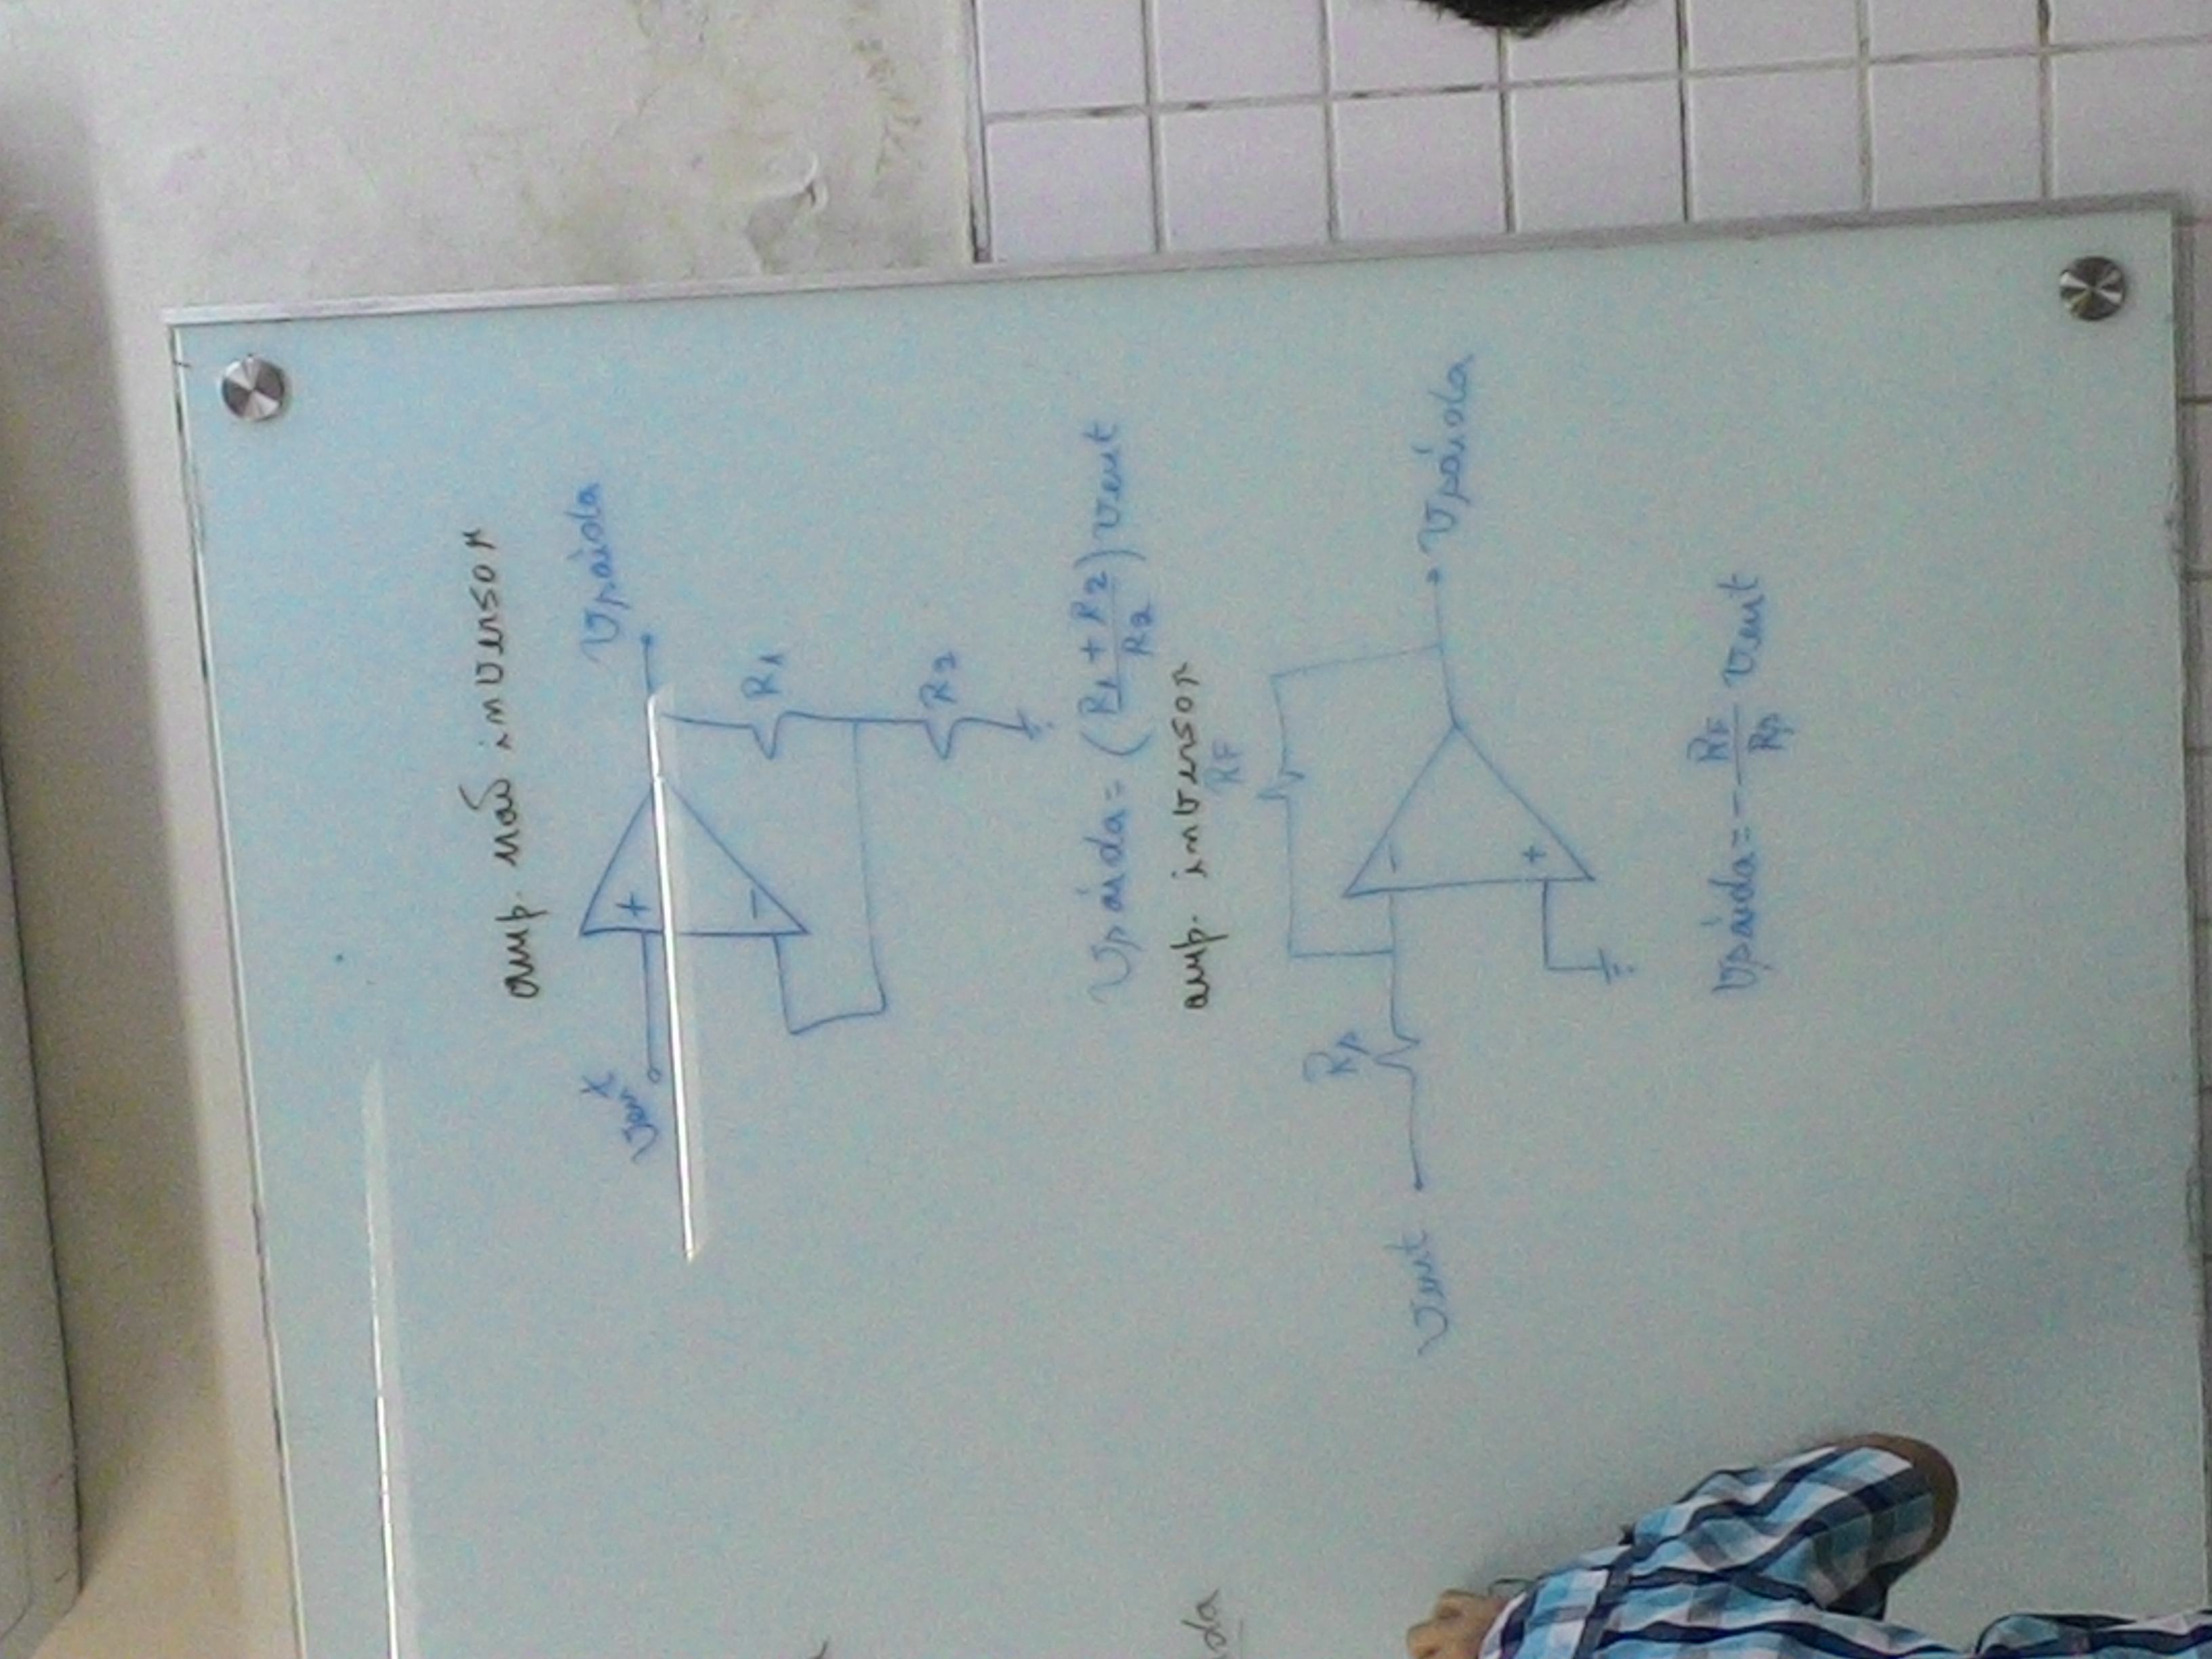 amp. não inversor
Vent
Vsaida
+
-
R1
R2
Vsáida = (R1 + R2 / R2) Vent
amp. inversor
RF
Rs
Vent
-
Vsáida
+
Vsáida = - RF / Rs Vent
da